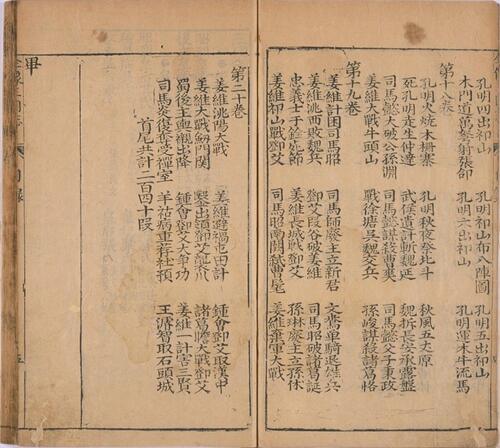 孔明四出祁山 孔明祁山布八陣圖 孔明五出祁山
木門道萬弩射張郃 孔明六出祁山 孔明運木牛流馬
第十八卷
孔明火燒木柵寨 孔明秋夜祭北斗 秋風五丈原
死孔明走生仲達 武侯遺計斬魏延 魏拆長安承露盤
司馬懿大破公孫淵 司馬懿謀殺曹爽 司馬懿父子秉政
姜維大戰牛頭山 戰徐塘吳魏交兵 孫峻謀殺諸葛恪
第十九卷
姜維計困司馬昭 司馬師廢主立新君 文鴦單騎退雄兵
姜維洮西敗魏兵 鄧艾叚谷破姜維 司馬昭破諸葛誕
忠義士于詮死節 姜維長城戰鄧艾 孫琳廢主立孫休
姜維祁山戰鄧艾 司馬昭南闕弒曹髦 姜維棄軍大戰
第二十卷
姜維洮陽大戰 姜維避禍屯田計 鍾會鄧艾取漢中
姜維大戰劍門關 鑿山嶺鄧艾襲川 諸葛瞻大戰鄧艾
蜀後主輿櫬出降 鍾會鄧艾大爭功 姜維一計害三賢
司馬炎復奪受禪臺 羊祜病重荐杜預 王濬智取石頭城
首尾共計二百四十段
畢